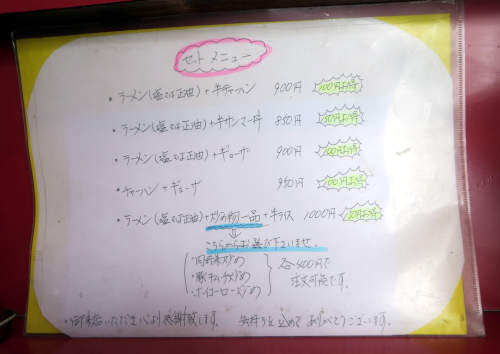 セットメニュー
・ラーメン(塩又は正油)+半チャーハン 900円 100円お得
・ラーメン(塩又は正油)+半サンマー丼 850円 50円お得
・ラーメン(塩又は正油)+ギョーザ 900円 100円お得
・チャーハン+ギョーザ 950円 100円お得
・ラーメン(塩又は正油)+炒め物一品+半ライス 1000円 50円お得
⇓
こちらからお選び下さいませ。
・肉野菜炒め
・豚キムチ炒め
・ホイコーロー炒め
各400円で
注文可能です。
・御来店いただき心より感謝致します。 気持ちを込めてありがとうございます。